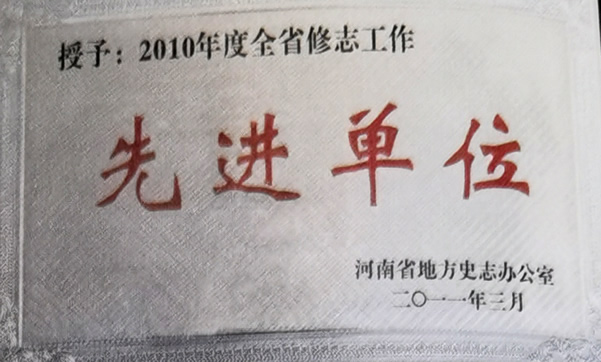 授予：2010年度全省修志工作
先进单位
河南省地方史志办公室
二〇一一年三月